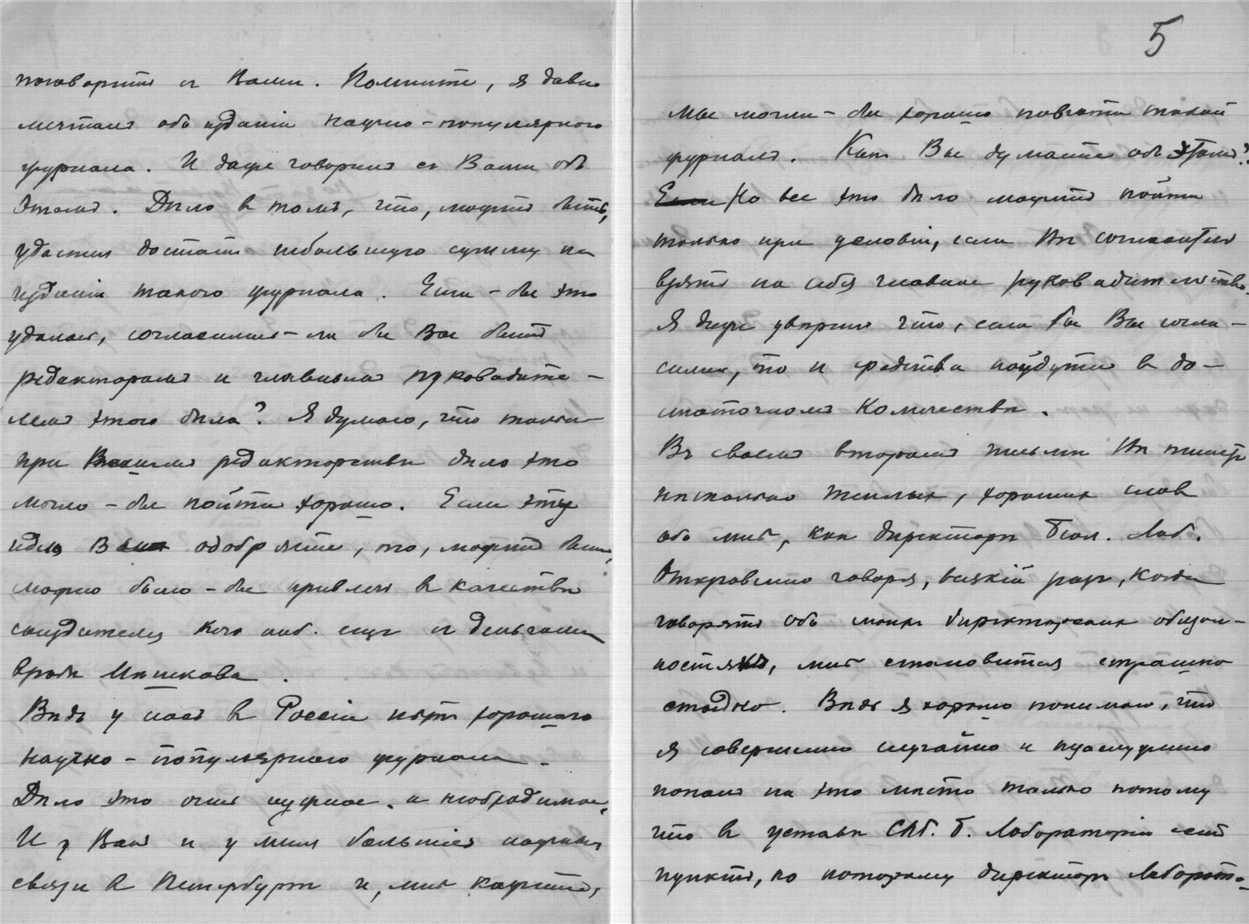 поговорить с Вами. Помните, я давно
мечталъ объ изданіи научно-популярного
журнала. И даже говорилъ съ Вами объ
этомъ. Дѣло в томъ, что, можетъ быть,
удастся достать небольшую сумму на
изданіе такого журнала. Если-бы это
удалось, согласились-ли бы Вы быть
редакторомъ и главнымъ руководите-
лемъ этого дѣла? Я думаю, что только
при Вашемъ редакторствѣ дѣло это
могло-бы пойти хорошо. Если эту
идею Вы одобряете, то, можетъ быть,
можно было-бы привлечь в качествѣ
соиздателя кого ниб. еще с деньгами
вродѣ
Вѣдь у насъ в Россіи нѣтъ хорошаго
научно-популярного журнала.
Дѣло это очень нужное и необходимое.
И у Васъ и у меня большія научныя
связи в Петербургѣ и, мнѣ кажется,
5
мы могли-бы хорошо повести такой
журналъ. Какъ Вы думаете объ этомъ?
Но все это дѣло можетъ пойти
только при условіи, если Вы согласитесь
взять на себя главное руководительство.
Я даже увѣренъ что, если бы Вы согла-
сились, то и средства найдутся в до-
статочномъ количествѣ.
Въ своемъ второмъ письмѣ Вы пишете
нѣсколько теплыхъ, хорошихъ словъ
обо мнѣ, как директорѣ Біол. Лаб.
Откровенно говоря, всякій разъ, когда
говорятъ объ моихъ директорскихъ обязан-
ностяхъ, мнѣ становится страшно
стыдно. Вѣдь я хорошо понимаю, что
я совершенно случайно и незаслуженно
попалъ на это мѣсто только потому
что в уставѣ СПб. Б. Лабораторіи есть
пунктъ, по которому директоръ Лаборато-